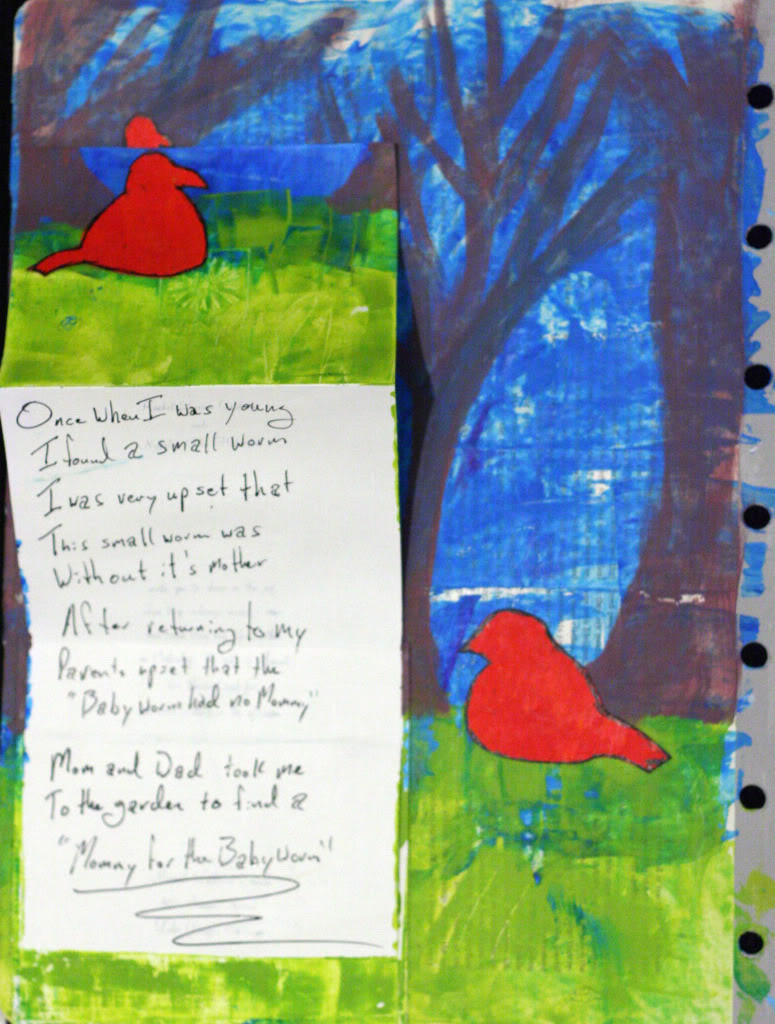 Once When I was young
I found a small worm
I was very upset that
This small worm was
Without it's mother
After returning to my
Parents upset that the
"Baby worm had no Mommy"
Mom and Dad took me
To the garden to find a
"Mommy for the Baby worm"